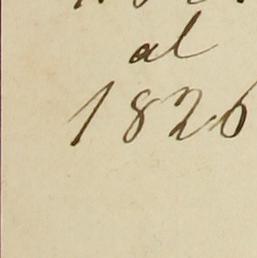 al
1826